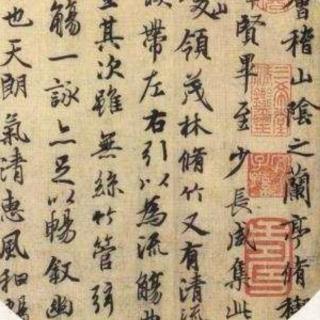 會稽山陰之蘭亭脩禊
賢畢至少長咸集此
領茂林脩竹又有清流
帶左右引以為流觴曲
其次雖無絲竹管弦
觴一詠亦足以暢敘幽
也天朗氣清惠風和暢